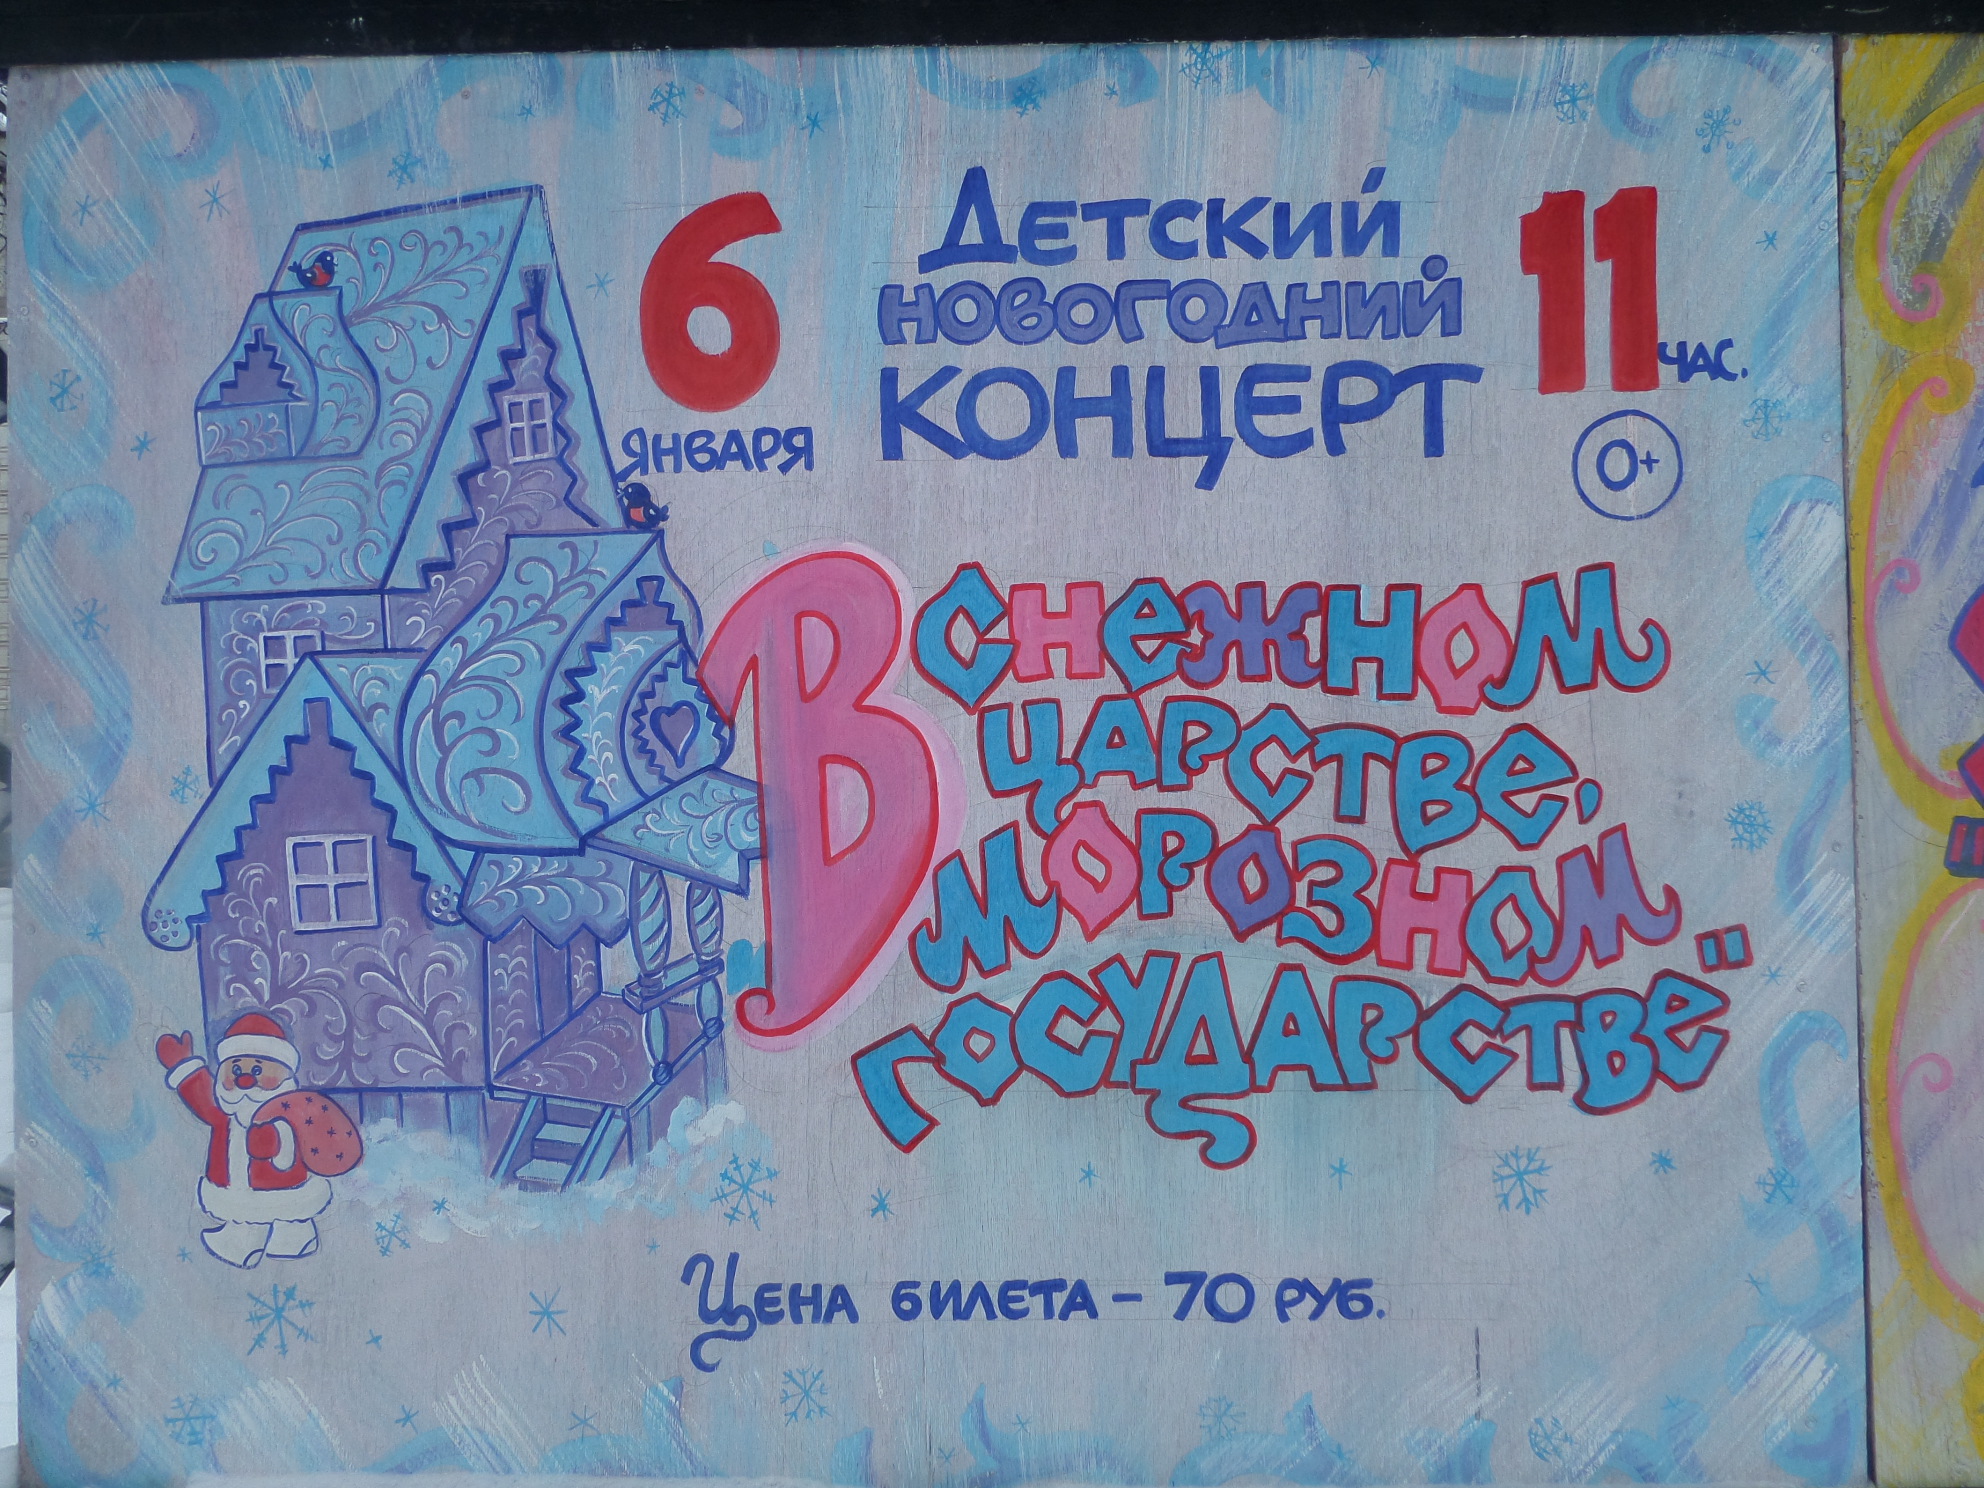 6
ЯНВАРЯ
ДЕТСКИЙ
НОВОГОДНИЙ
КОНЦЕРТ
11
ЧАС.
0+
В СНЕЖНОМ
ЦАРСТВЕ,
МОРОЗНОМ
ГОСУДАРСТВЕ"
ЦЕНА БИЛЕТА – 70 РУБ.